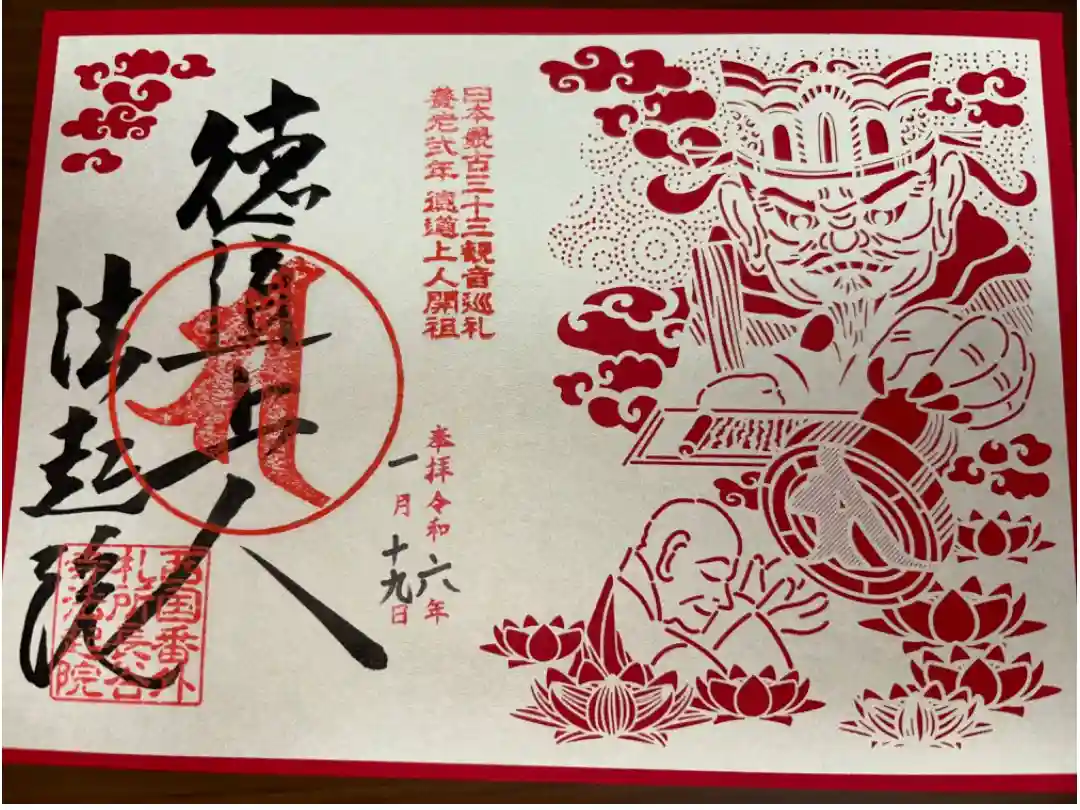 日本最古三十三観音巡礼
養老弐年 徳道上人開祖
奉拝令和六年
一月十九日
徳道上人
法起院
西国番外
札所長谷
寺法起院